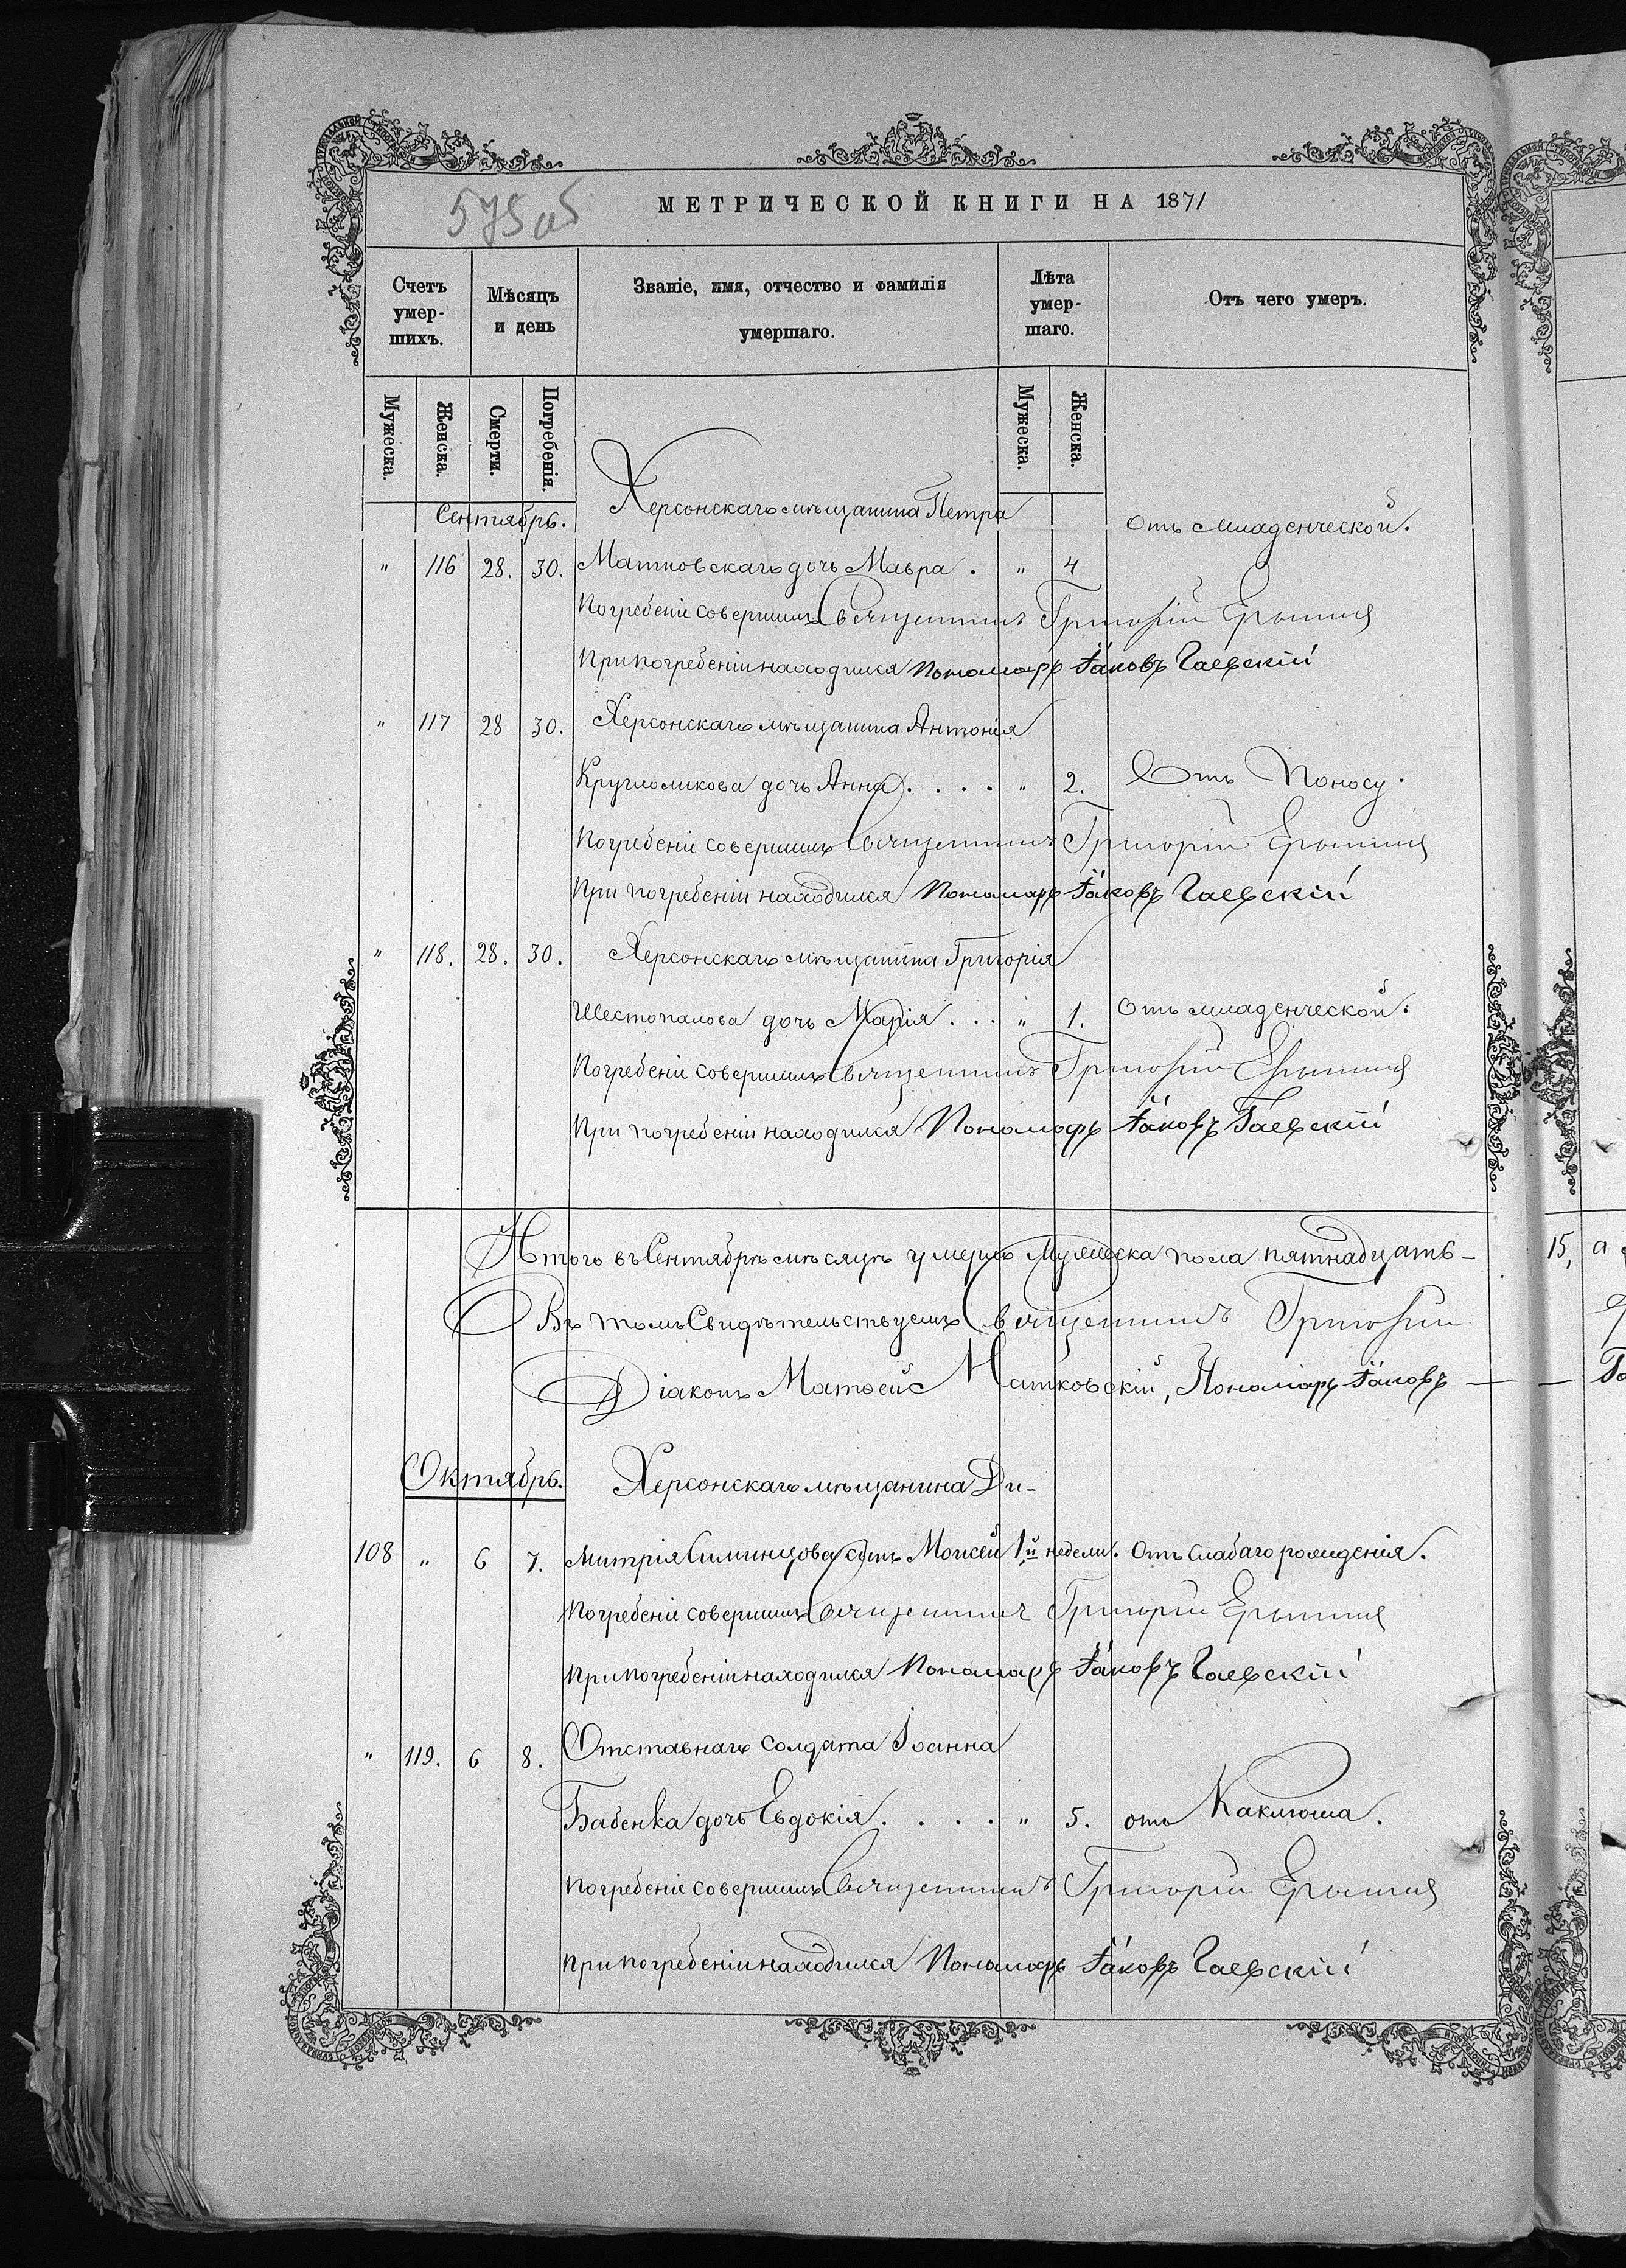 575 об
МЕТРИЧЕСКОЙ КНИГИ НА 1871
Счетъ умер-шихъ.
Мѣсяцъ и день
Званіе, имя, отчество и фамилія умершаго.
Лѣта умер-шаго.
Отъ чего умеръ.
Мужеска.
Женска.
Смерти.
Погребенія.
Мужеска.
Женска.
Сентябрь. Херсонскаго мѣщанина Петра Отъ младенческой.
" 116 28. 30. Матковскаго дочь Мавра . " 4
Погребеніе совершилъ Священникъ Григорій
При погребеніи находился Пономарь Іаковъ Гаевскій
" 117 28 30. Херсонскаго мѣщанина Антонія
Кругломикова дочь Анна . . . . " 2. Отъ Поносу.
Погребеніе совершилъ Священникъ Григорій
При погребеніи находился Пономарь Іаковъ Гаевскій
" 118. 28. 30. Херсонскаго мѣщанина Григорія
Шестопалова дочь Марія . . . " 1. Отъ младенческой.
Погребеніе совершилъ Священникъ Григорій
При погребеніи находился Пономарь Іаковъ Гаевскій
Итого въ Сентябрѣ мѣсяцѣ умерло Мужеска пола пятнадцать – 15, а
Въ томъ Свидѣтельствуемъ Священникъ Григорій
Діаконъ Матѳей Матковскій, Пономарь Іаковъ
Октябрь. Херсонскаго мѣщанина Ди-
108 " 6 7. митрія Симинцова сынъ Моисей 1й недели. Отъ слабаго рожденія.
Погребеніе совершилъ Священникъ Григорій
При погребеніи находился Пономарь Іаковъ Гаевскій
" 119. 6 8. Отставнаго солдата Іоанна
Бабенка дочь Евдокія . . . . " 5. отъ Каклюша.
Погребеніе совершилъ Священникъ Григорій
При погребеніи находился Пономарь Іаковъ Гаевскій